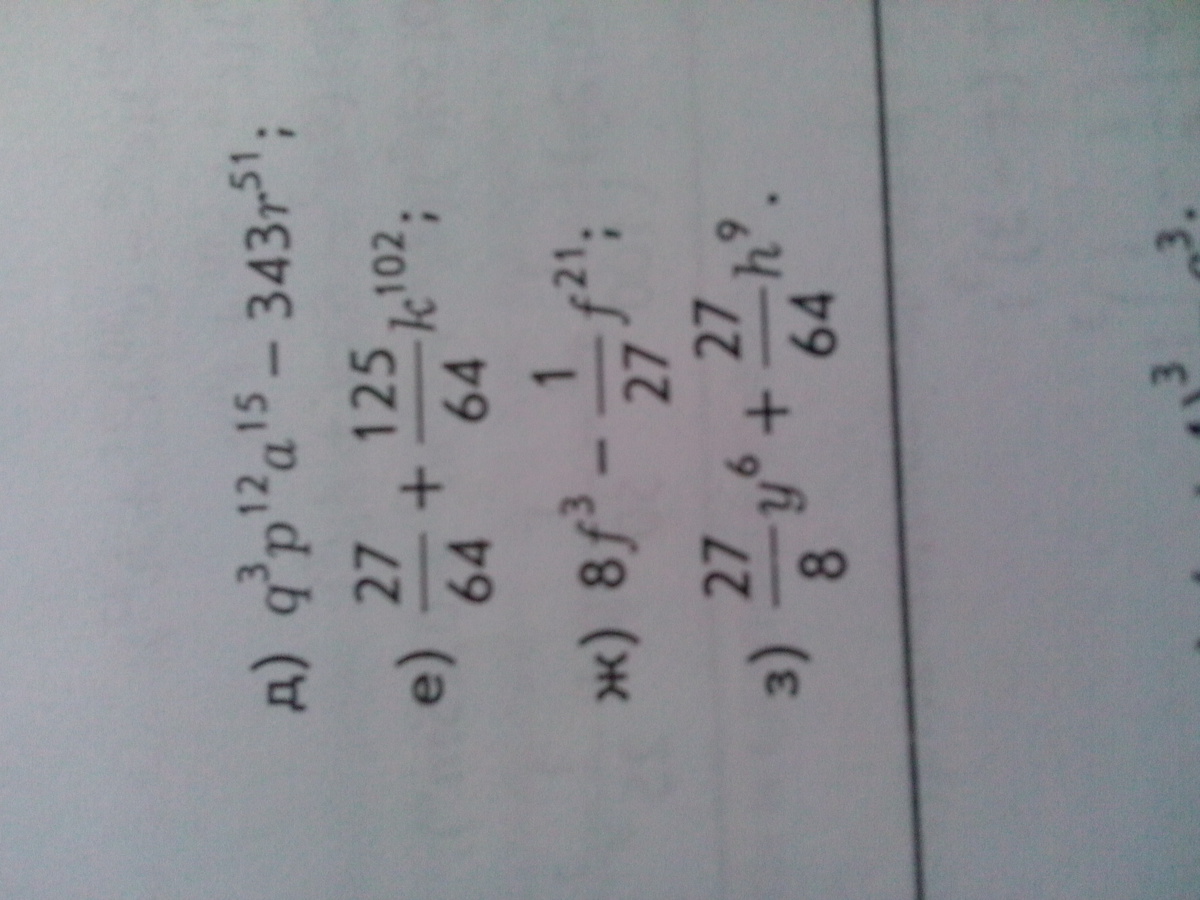 д) q³p¹²a¹⁵ − 343r⁵¹;
е) 27/64 + 125/64 k¹⁰²;
ж) 8f³ − 1/27 f²¹;
з) 27/8 y⁶ + 27/64 h⁹.